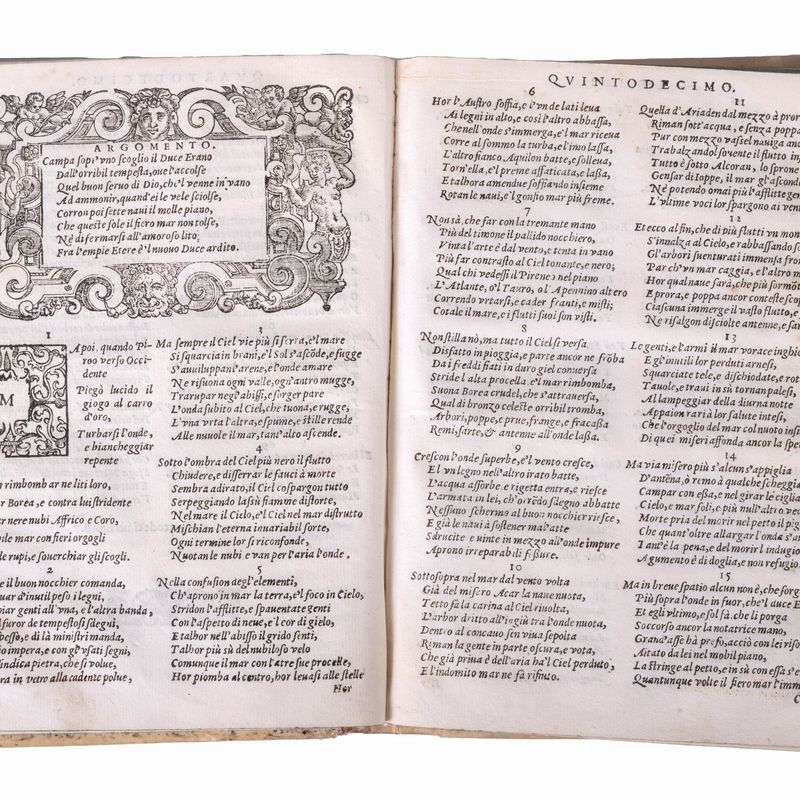 ARGOMENTO.
Campa sopr'vno scoglio il Duce Erano
Dall'orribil tempesta, oue l'accolse
Quel buon seruo di Dio, che'l venne in vano
Ad ammonir, quand'ei le vele sciolse,
Corron poi sette naui il molle piano,
Che queste sole il fiero mar non tolse,
Nè di fermarsi all'amoroso lito
Fra l'empie Etere è'l nuouo Duce ardito.
1
M
A poi, quando Pi-
roo verso Occi-
dente
Piegò lucido il
giogo al carro
d'oro,
Turbarsi l'onde,
e biancheggiar
repente
e rimbombar ne liti loro,
r Borea, e contra lui stridente
er nere nubi Affrico e Coro,
ile mar con fieri orgogli
le rupi, e souerchiar gli scogli.
2
e il buon nocchier comanda,
uar d'inutil peso i legni,
iar genti all'vna, e l'altra banda,
l furor de tempestosi sdegni,
pesso, e di là ministri manda,
o impera, e con gl'vsati segni,
indica pietra, che si volue,
ra in vetro alla cadente polue,
3
Ma sempre il Ciel vie più si serra, e'l mare
Si squarcia in brani, e'l Sol s'ascōde, e fugge
S'auuiluppan l'arene, e l'onde amare
Ne risuona ogni valle, ogn'antro mugge,
Trarupar negl'abissi, e sorger pare
L'onda subito al Ciel, che tuona, e rugge,
E vna vrta l'altra, e spume, e stille rende
Alle nuuole il mar, tant'alto ascende.
4
Sotto l'ombra del Ciel più nero il flutto
Chiudere, e disserrar le fauci à morte
Sembra adirato, il Ciel cospargon tutto
Serpeggiando lassù fiamme distorte,
Nel mare il Cielo, e'l Ciel nel mar distrutto
Mischian l'eterna inuariabil sorte,
Ogni termine lor si riconfonde,
Nuotan le nubi e van per l'aria l'onde.
5
Nella confusion degl'elementi,
Ch'aprono in mar la terra, e'l foco in Cielo,
Stridon l'afflitte, e spauentate genti
Con l'aspetto di neue, e'l cor di gielo,
Etalhor nell'abisso il grido senti,
Talhor più sù del nubiloso velo
Comunque il mar con l'atre sue procelle,
Hor piomba al centro, hor leuasi alle stelle
Hor
QVINTODECIMO.
6
Hor l'Austro soffia, e l'vn de lati leua
Ai legni in alto, e così l'altro abbassa,
Che nell'onde s'immerga, e'l mar riceua
Corre al sommo la turba, e l'imo lassa,
L'altro fianco Aquilon batte, e solleua,
Torn'ella, e'l preme affaticata, e lassa,
Et alhora amendue soffiando insieme
Rotan le naui, e'l gonfio mar più freme.
7
Non sà, che far con la tremante mano
Più del timone il pallido nocchiero,
Vinta l'arte è dal vento, e tenta in vano
Più far contrasto al Ciel tonante, e nero;
Qual chi vedessi il Pirene o nel piano
L'Atlante, o'l Tauro, o l'Apennino altero
Correndo vrtarsi, e cader franti, e misti;
Cotale il mare, e i flutti suoi son visti.
8
Non stilla nò, ma tutto il Ciel si versa
Disfatto in pioggia, e parte ancor ne frōba
Da i freddi fiati in duro giel conuersa
Stride l'alta procella, e'l mar rimbomba,
Suona Borea crudel, che s'attrauersa,
Qual di bronzo celeste orribil tromba,
Arbori, poppe, e prue, frange, e fracassa
Remi, sarte, & antenne all'onde lassa.
9
Crescon l'onde superbe, e'l vento cresce,
E l'vn legno nell'altro irato batte,
L'acqua assorbe e rigetta entra, e riesce
L'armata in lei, ch'orrēdo sdegno abbatte
Nessuno schermo al buon nocchier riesce,
E già le naui à sostener mal'atte
Sdrucite e uinte in mezzo all'onde impure
Aprono irreparabili fissure.
10
Sottosopra nel mar dal vento volta
Già del misero Acar la naue nuota,
Tetto fà la carina al Ciel riuolta,
L'arbor dritto all'ingiù tra l'onde nuota,
Dentro al concauo sen viua sepolta
Riman la gente in parte oscura, e vota,
Che già priua è dell'aria ha'l Ciel perduto,
E l'indomito mar ne fà rifiuto.
11
Quella d'Ariaden dal mezzo à pror
Riman sott'acqua, e senza poppa
Pur con mezzo vasel nauiga anc
Trabalzandol souente il flutto in
Tutto è sotto Alcoran, lo sprone
Gensar di Ioppe, il mar gl'ascond
Nè potendo omai più l'afflitte gen
L'vltime voci lor spargono ai ven
12
Et ecco al fin, che di più flutti vn mon
S'innalza al Cielo, e rabbassando s
Gl'arbori suenturati immensa fron
Par ch'vn mar caggia, e l'altro m
Hor qual naue sarà, che più sormōt
E prora, e poppa ancor conteste scop
Ciascuna immerge il vasto flutto, e
Ne risalgon disciolte antenne, e sar
13
Le genti, e l'armi il mar vorace inghio
E gl'inutili lor perduti arnesi,
Squarciate tele, e dischiodate, e rot
Tauole, e traui in sù tornan palesi,
Al lampeggiar della diurna notte
Appaion rari à lor salute intesi,
Che l'orgoglio del mar col nuoto insi
Di quei miseri affonda ancor la spe
14
Ma via misero più s'alcun s'appiglia
D'antēna, ò remo à qualche scheggia
Campar con essa, e nel girar le ciglia
Cielo, e mar sol i, e più null'altro ved
Morte pria del morir nel petto il pig
Che quant'oltre allargar l'onda s'a
Tant'è la pena, e del morir l'indugio
Argumento è di doglia, e non refugio
15
Ma in breue spatio alcun non è, che sorg
Più sopra l'onde in fuor, che'l duce E
Et egli vltimo, e sol fà che li porga
Soccorso ancor la notatrice mano,
Grand'asse hà preso, acciò con lei riso
Aitato da lei nel mobil piano,
La stringe al petto, e in sù con essa s'e
Quantunque volte il fiero mar l'imm